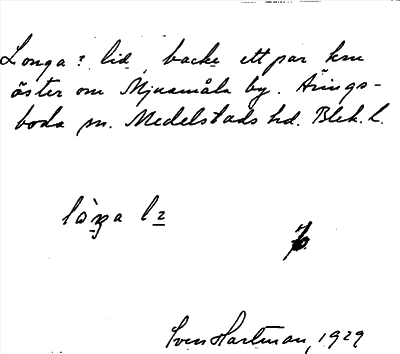 Longa? lid, backe ett par km
öster om Mjuamåla by. Årings-
boda sn. Medelstads hd. Blek. l.
Sven Hartman, 1929